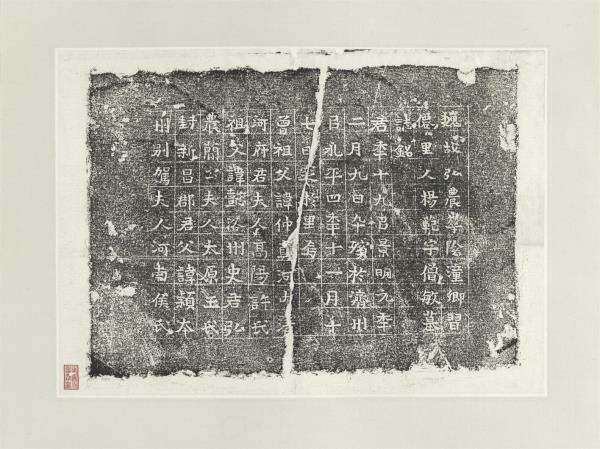 魏故弘農華陰潼鄉習
僊里人楊範字僧敏墓
誌銘
君年十九以景明元年
二月九日卒殯於濟州
以永平四年十一月十
七日窆於里焉
曾祖父諱仲真河內清
河府君夫人高陽許氏
祖父諱懿洛州史君弘
農簡公夫人太原王氏
封新昌郡君父諱穎本
州別駕夫人河南侯氏